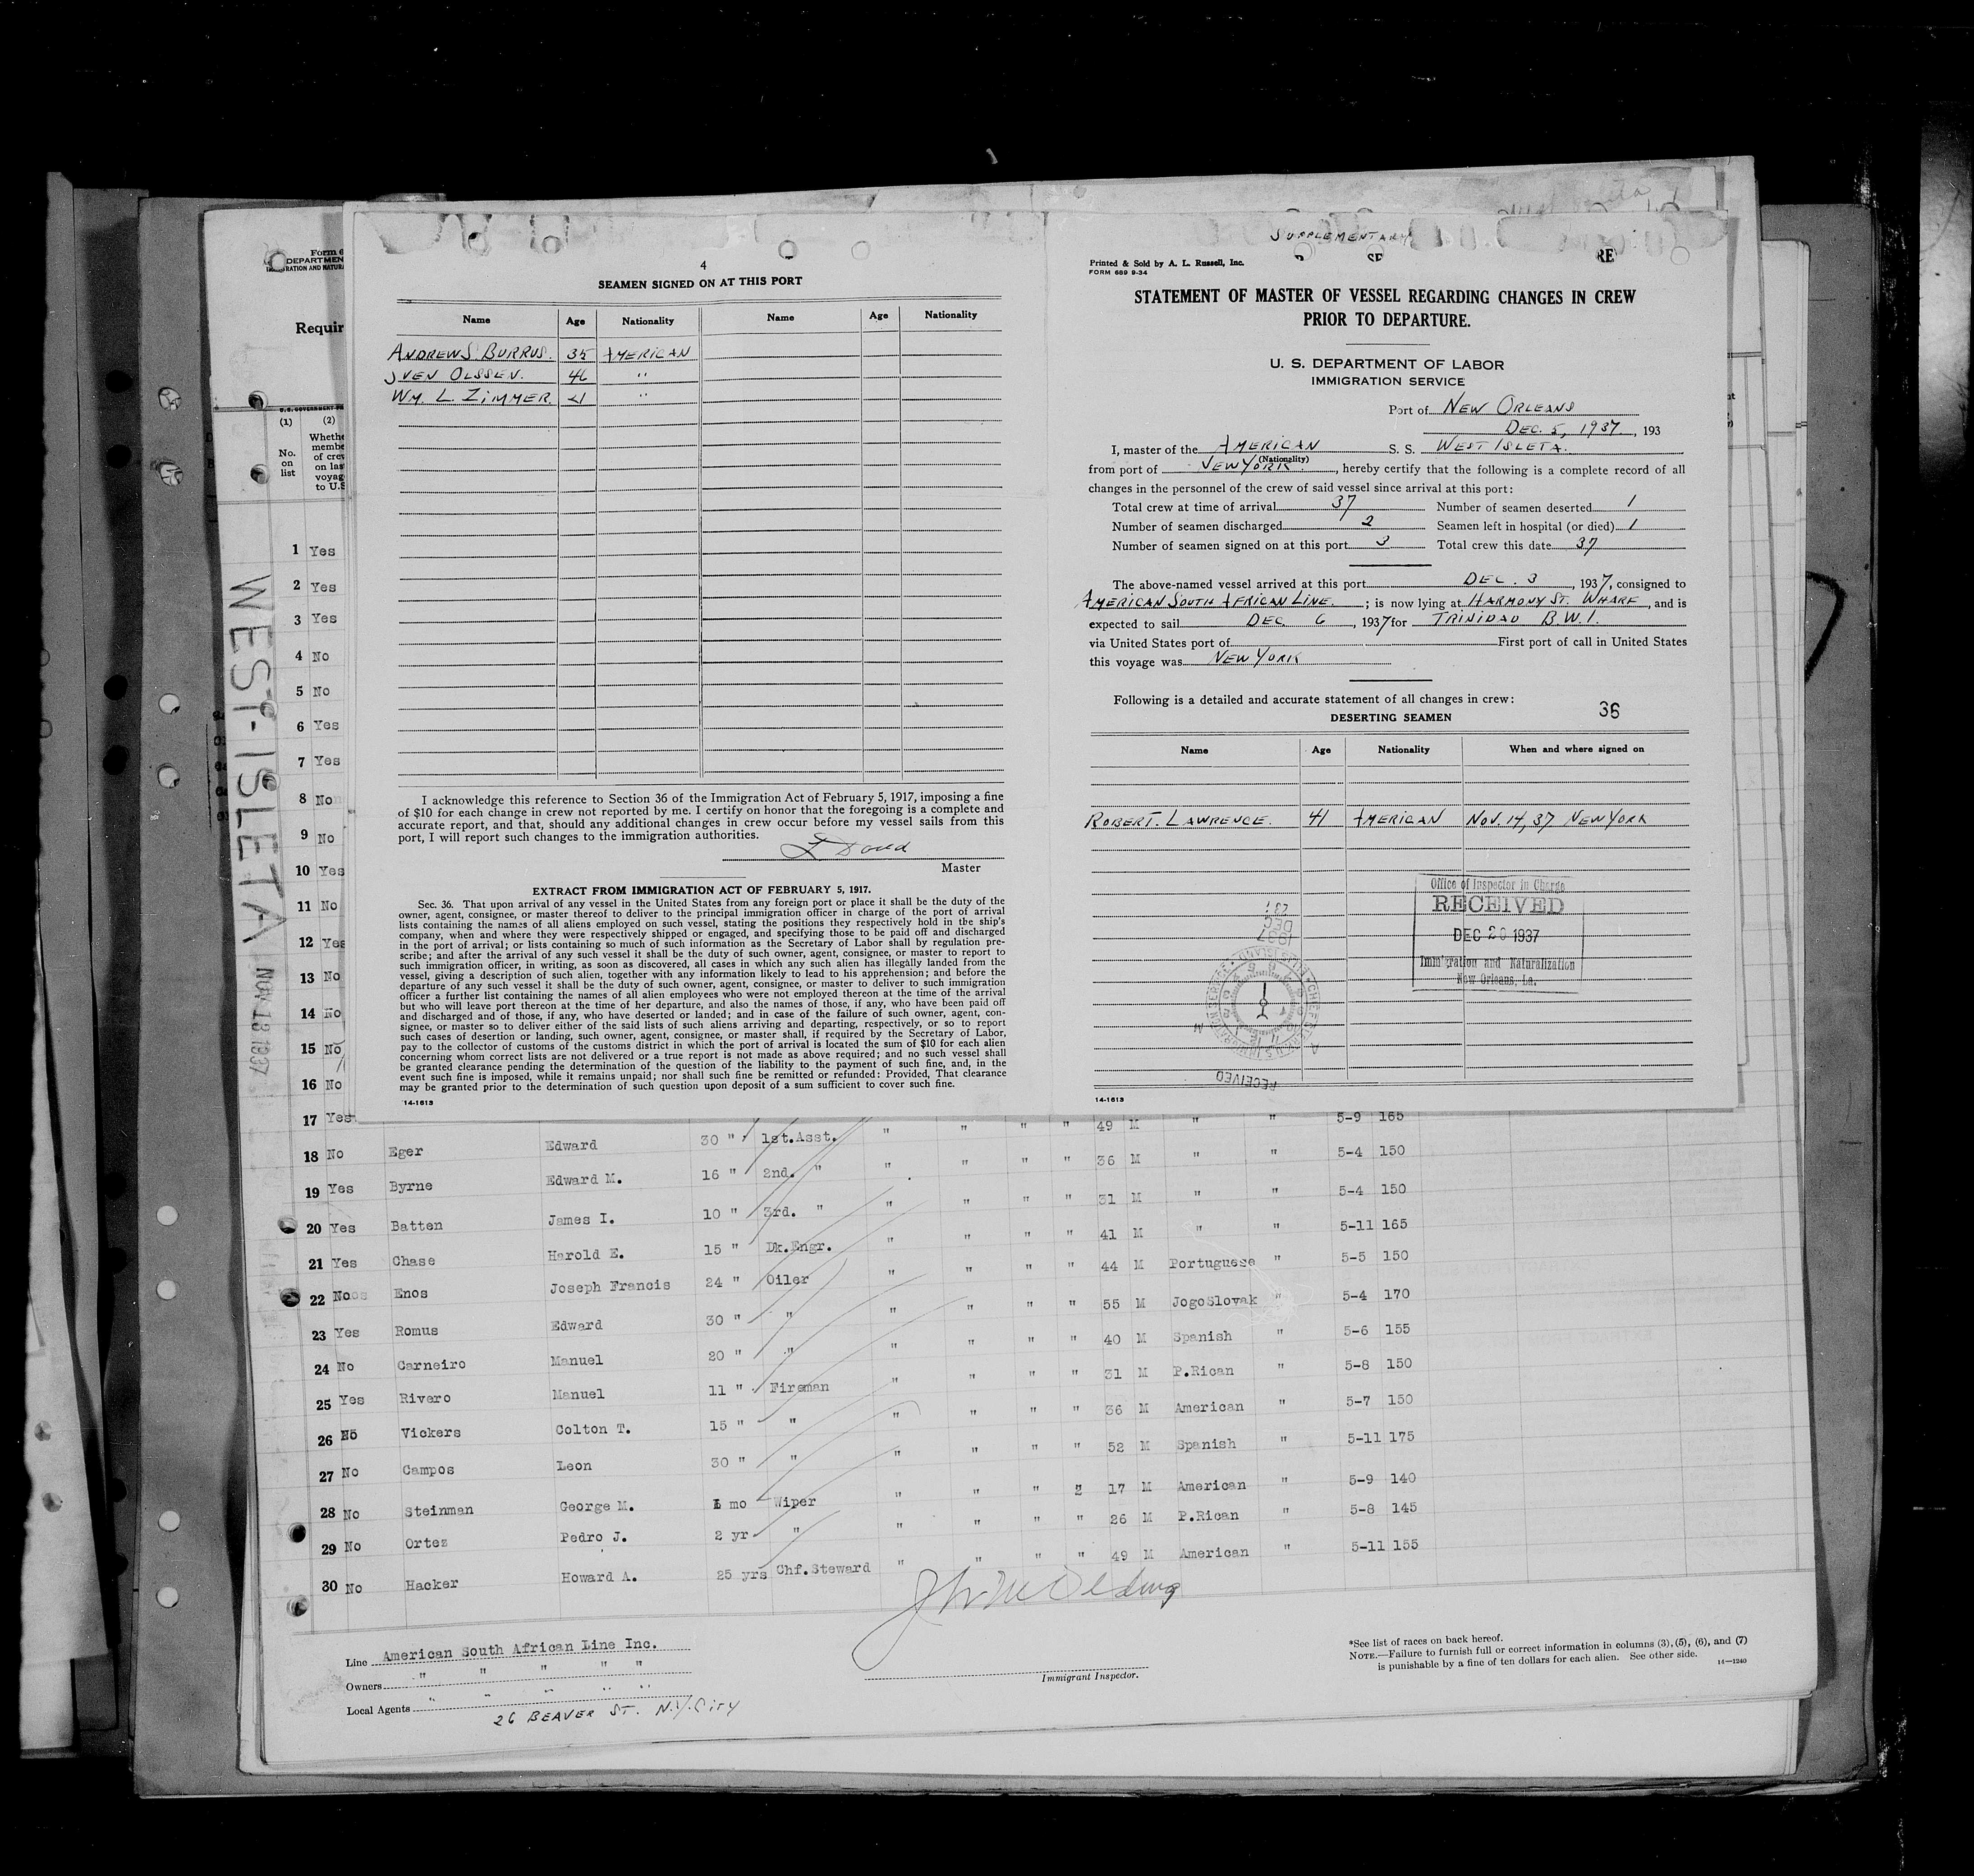 4
SEAMEN SIGNED ON AT THIS PORT
Name Age Nationality Name Age Nationality
ANDREW S. BURRUS. 35 AMERICAN
SVEN OLSSEN. 46 "
WM. L. ZIMMER. 41 "
I acknowledge this reference to Section 36 of the Immigration Act of February 5, 1917, imposing a fine
of $10 for each change in crew not reported by me. I certify on honor that the foregoing is a complete and
accurate report, and that, should any additional changes in crew occur before my vessel sails from this
port, I will report such changes to the immigration authorities.
Master
EXTRACT FROM IMMIGRATION ACT OF FEBRUARY 5, 1917.
Sec. 36. That upon arrival of any vessel in the United States from any foreign port or place it shall be the duty of the
owner, agent, consignee, or master thereof to deliver to the principal immigration officer in charge of the port of arrival
lists containing the names of all aliens employed on such vessel, stating the positions they respectively hold in the ship's
company, when and where they were respectively shipped or engaged, and specifying those to be paid off and discharged
in the port of arrival; or lists containing so much of such information as the Secretary of Labor shall by regulation pre-
scribe; and after the arrival of any such vessel it shall be the duty of such owner, agent, consignee, or master to report to
such immigration officer, in writing, as soon as discovered, all cases in which any such alien has illegally landed from the
vessel, giving a description of such alien, together with any information likely to lead to his apprehension; and before the
departure of any such vessel it shall be the duty of such owner, agent, consignee, or master to deliver to such immigration
officer a further list containing the names of all alien employees who were not employed thereon at the time of the arrival
but who will leave port thereon at the time of her departure, and also the names of those, if any, who have been paid off
and discharged and of those, if any, who have deserted or landed; and in case of the failure of such owner, agent, con-
signee, or master so to deliver either of the said lists of such aliens arriving and departing, respectively, or so to report
such cases of desertion or landing, such owner, agent, consignee, or master shall, if required by the Secretary of Labor,
pay to the collector of customs of the customs district in which the port of arrival is located the sum of $10 for each alien
concerning whom correct lists are not delivered or a true report is not made as above required; and no such vessel shall
be granted clearance pending the determination of the question of the liability to the payment of such fine, and, in the
event such fine is imposed, while it remains unpaid; nor shall such fine be remitted or refunded: Provided, That clearance
may be granted prior to the determination of such question upon deposit of a sum sufficient to cover such fine.
14-1613
SUPPLEMENTARY
Printed & Sold by A. L. Russell, Inc.
FORM 689 9-34
STATEMENT OF MASTER OF VESSEL REGARDING CHANGES IN CREW
PRIOR TO DEPARTURE.
U. S. DEPARTMENT OF LABOR
IMMIGRATION SERVICE
Port of NEW ORLEANS
DEC. 5, 1937, 193
I, master of the AMERICAN S. S. WEST ISLETA.
(Nationality)
from port of NEW YORK, hereby certify that the following is a complete record of all
changes in the personnel of the crew of said vessel since arrival at this port:
Total crew at time of arrival 37 Number of seamen deserted 1
Number of seamen discharged 2 Seamen left in hospital (or died) 1
Number of seamen signed on at this port 3 Total crew this date 37
The above-named vessel arrived at this port DEC. 3, 1937, consigned to
AMERICAN SOUTH AFRICAN LINE.; is now lying at HARMONY ST. WHARF, and is
expected to sail DEC 6, 1937 for TRINIDAD B.W.I.
via United States port of First port of call in United States
this voyage was NEW YORK
Following is a detailed and accurate statement of all changes in crew:
DESERTING SEAMEN 36
Name Age Nationality When and where signed on
ROBERT. LAWRENCE. 41 AMERICAN NOV. 14, 37 NEW YORK
Office of Inspector in Charge
RECEIVED
DEC 20 1937
Immigration and Naturalization
New Orleans, La.
1937
DEC
RECEIVED
14-1613
Form 6
DEPARTMEN
Requir
(1) (2)
No. on list
Whethe
membe
of crew
on las
voyag
to U.S
WEST-ISLETA NOV 13 1937
1 Yes
2 Yes
3 Yes
4 No
5 No
6 Yes
7 Yes
8 No
9 No
10 Yes
11 No
12 Yes
13 No
14 No
15 No
16 No
17 Yes " " " " 49 M " " 5-9 165
18 No Eger Edward 30 " 1st.Asst. " " " " 36 M " " 5-4 150
19 Yes Byrne Edward M. 16 " 2nd. " " " " " 31 M " " 5-4 150
20 Yes Batten James I. 10 " 3rd. " " " " " 41 M " " 5-11 165
21 Yes Chase Harold E. 15 " Dk.Engr. " " " " 44 M Portuguese " 5-5 150
22 No Enos Joseph Francis 24 " Oiler " " " " 55 M JogoSlovak " 5-4 170
23 Yes Romus Edward 30 " " " " " " 40 M Spanish " 5-6 155
24 No Carneiro Manuel 20 " " " " " " 31 M P.Rican " 5-8 150
25 Yes Rivero Manuel 11 " Fireman " " " " 36 M American " 5-7 150
26 No Vickers Colton T. 15 " " " " " " 52 M Spanish " 5-11 175
27 No Campos Leon 30 " " " " " " 17 M American " 5-9 140
28 No Steinman George M. 1 mo Wiper " " " " 26 M P.Rican " 5-8 145
29 No Ortez Pedro J. 2 yr " " " " " 49 M American " 5-11 155
30 No Hacker Howard A. 25 yrs Chf.Steward
Line American South African Line Inc.
Owners " " " " "
Local Agents " " " " "
26 BEAVER ST. N.Y. CITY
Immigrant Inspector.
*See list of races on back hereof.
NOTE.—Failure to furnish full or correct information in columns (3), (5), (6), and (7)
is punishable by a fine of ten dollars for each alien. See other side.
14—1240